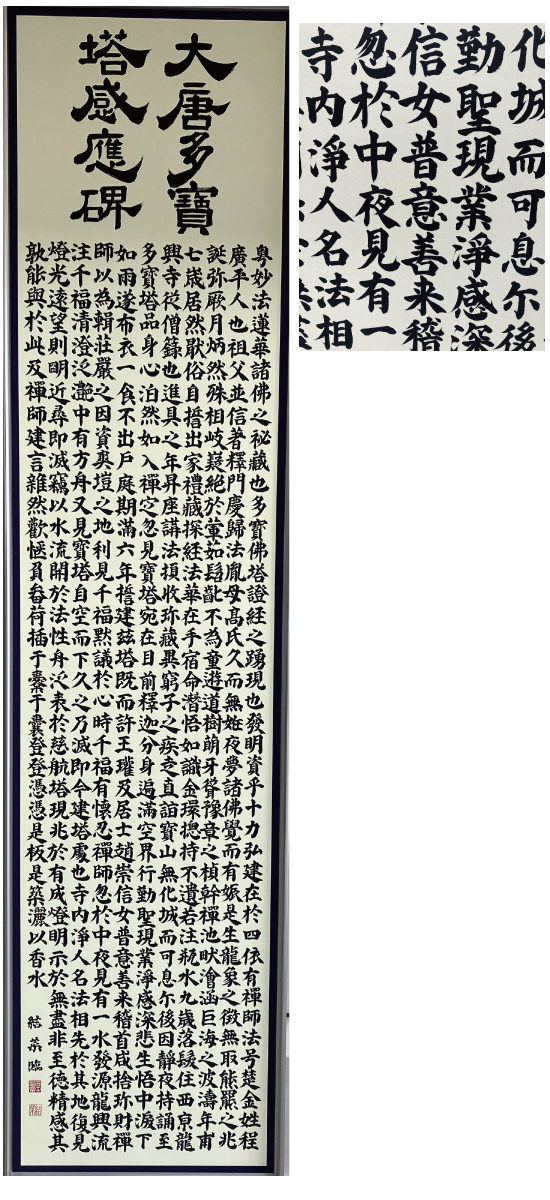 大唐多寶
塔感應碑
粵妙法蓮華諸佛之祕藏也多寶佛塔證經之踴現也發明資乎十力弘建在於四依有禪師法号楚金姓程
廣平人也祖父並信著釋門慶歸法胤母高氏久而無姙夜夢諸佛覺而有娠是生龍象之徵無取熊羆之兆
誕弥厥月炳然殊相岐嶷絕於葷茹髫齔不為童遊道樹萌牙聳豫章之楨幹禪池畎澮涵巨海之波濤年甫
七歲居然猒俗自誓出家禮藏探經法華在手宿命潛悟如識金環揔持不遺若注瓶水九歲落髮住西京龍
興寺從僧籙也進具之年昇座講法頓收珎藏異窮子之疾走直詣寶山無化城而可息尒後因靜夜持誦至
多寶塔品身心泊然如入禪定忽見寶塔宛在目前釋迦分身遍滿空界行勤聖現業淨感深悲生悟中淚下
如雨遂布衣一食不出戶庭期滿六年誓建茲塔既而許王瓘及居士趙崇信女普意善来稽首咸捨珎財禪
師以為輯莊嚴之因資爽塏之地利見千福默議於心時千福有懷忍禪師忽於中夜見有一水發源龍興流
注千福清澄泛灩中有方舟又見寶塔自空而下久之乃滅即今建塔處也寺内淨人名法相先於其地復見
燈光遠望則明近尋即滅竊以水流開於法性舟泛表於慈航塔現兆於有成燈明示於無盡非至德精感其
孰能與於此及禪師建言雜然歡愜負畚荷插于橐于囊登登憑憑是板是築灑以香水
臨
化城而可息尒後
勤聖現業淨感深
信女普意善来稽
忽於中夜見有一
寺内淨人名法相